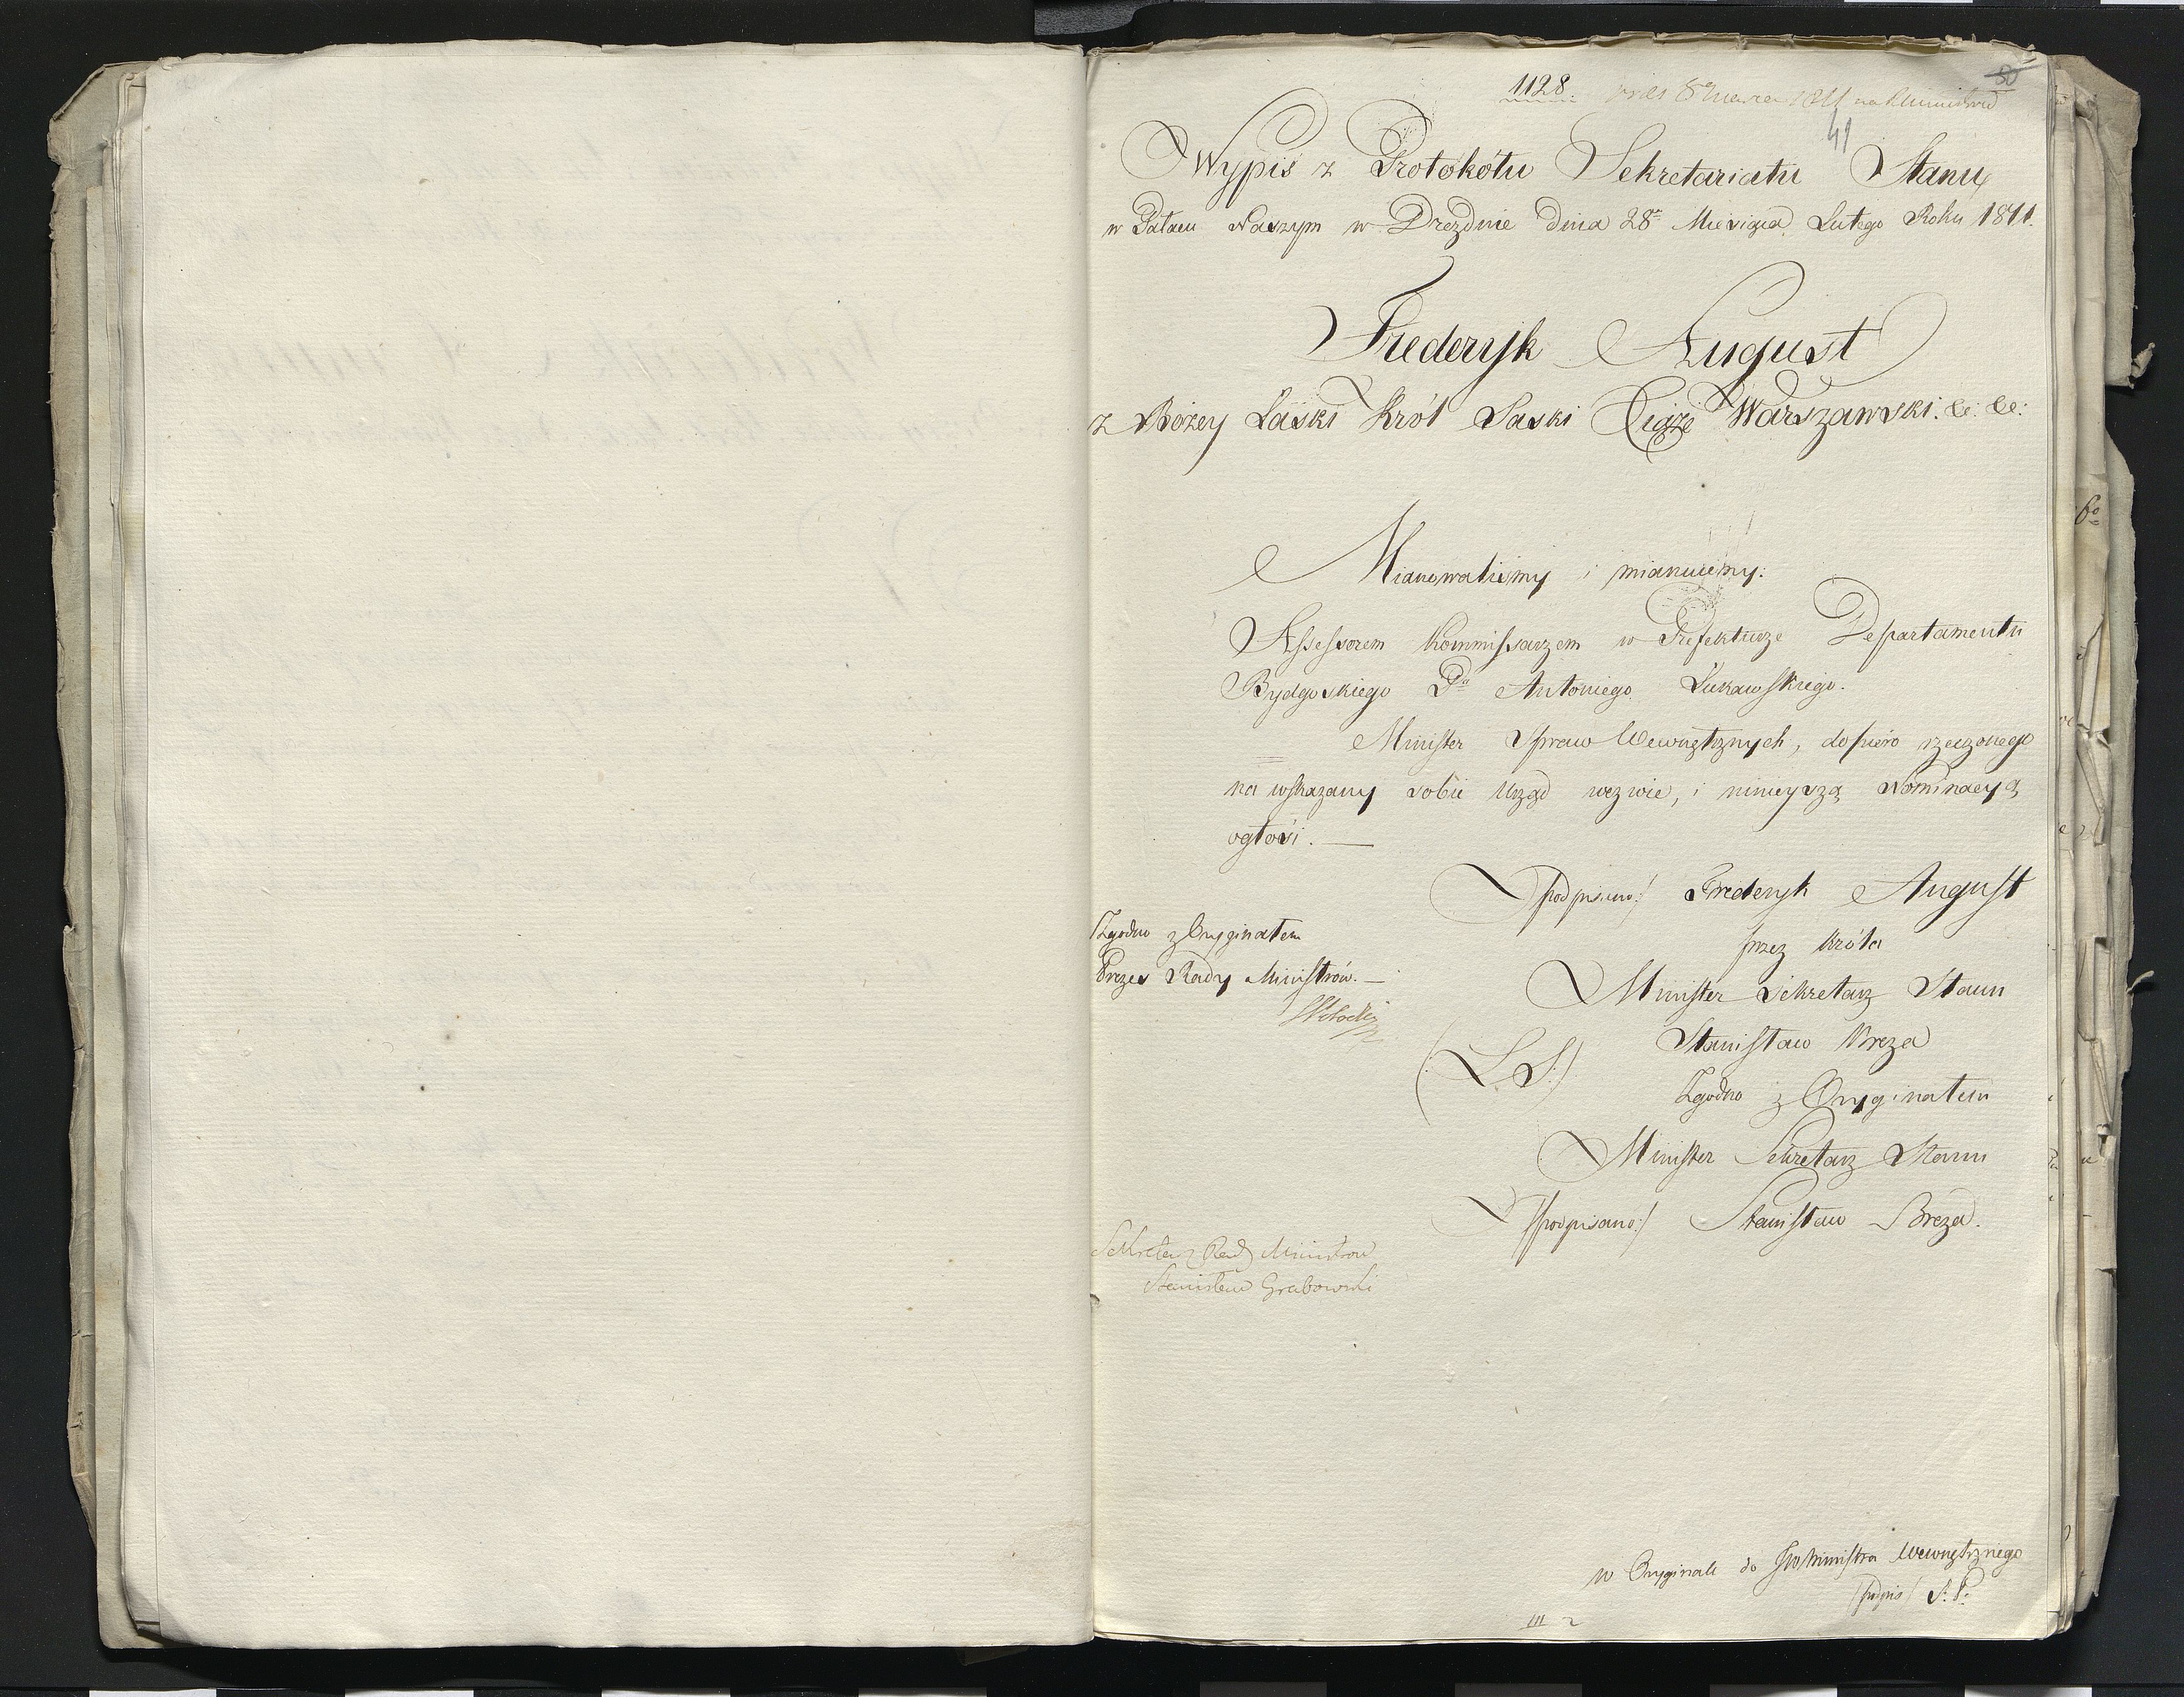 1128. 8 Marca 1811 na
50
41
Wypis z Protokołu Sekretariatu Stanu
w Pałacu Naszym w Dreznie Dnia 28º Miesiąca Lutego Roku 1811.
Frederyk August
z Bożey Łaski Król Saski Xiąże Warszawski. &c: &c:
Mianowaliśmy i mianuiemy:
Assessorem Kommissarzem w Prefekturze Departamentu
Bydgoskiego Pa Antoniego Łukawskiego.
Minister Spraw Wewnętrznych, dopiero rzeczonego
na wskazany sobie Urząd wezwie, i ninieyszą Nominacyą
ogłosi. —
/podpisano:/ Frederyk August
przez Króla
Minister Sekretarz Stanu
(: L. S:) Stanisław Breza
Zgodno z Oryginałem
Minister Sekretarz Stanu
/podpisano:/ Stanisław Breza.
Zgodno z Oryginałem
Prezes Rady Ministrów. —
Sekretarz Rady Ministrow
Stanisław Grabowski
w Oryginale do JW Ministra Wewnętrznego
/podpis/ S. P.
III 2